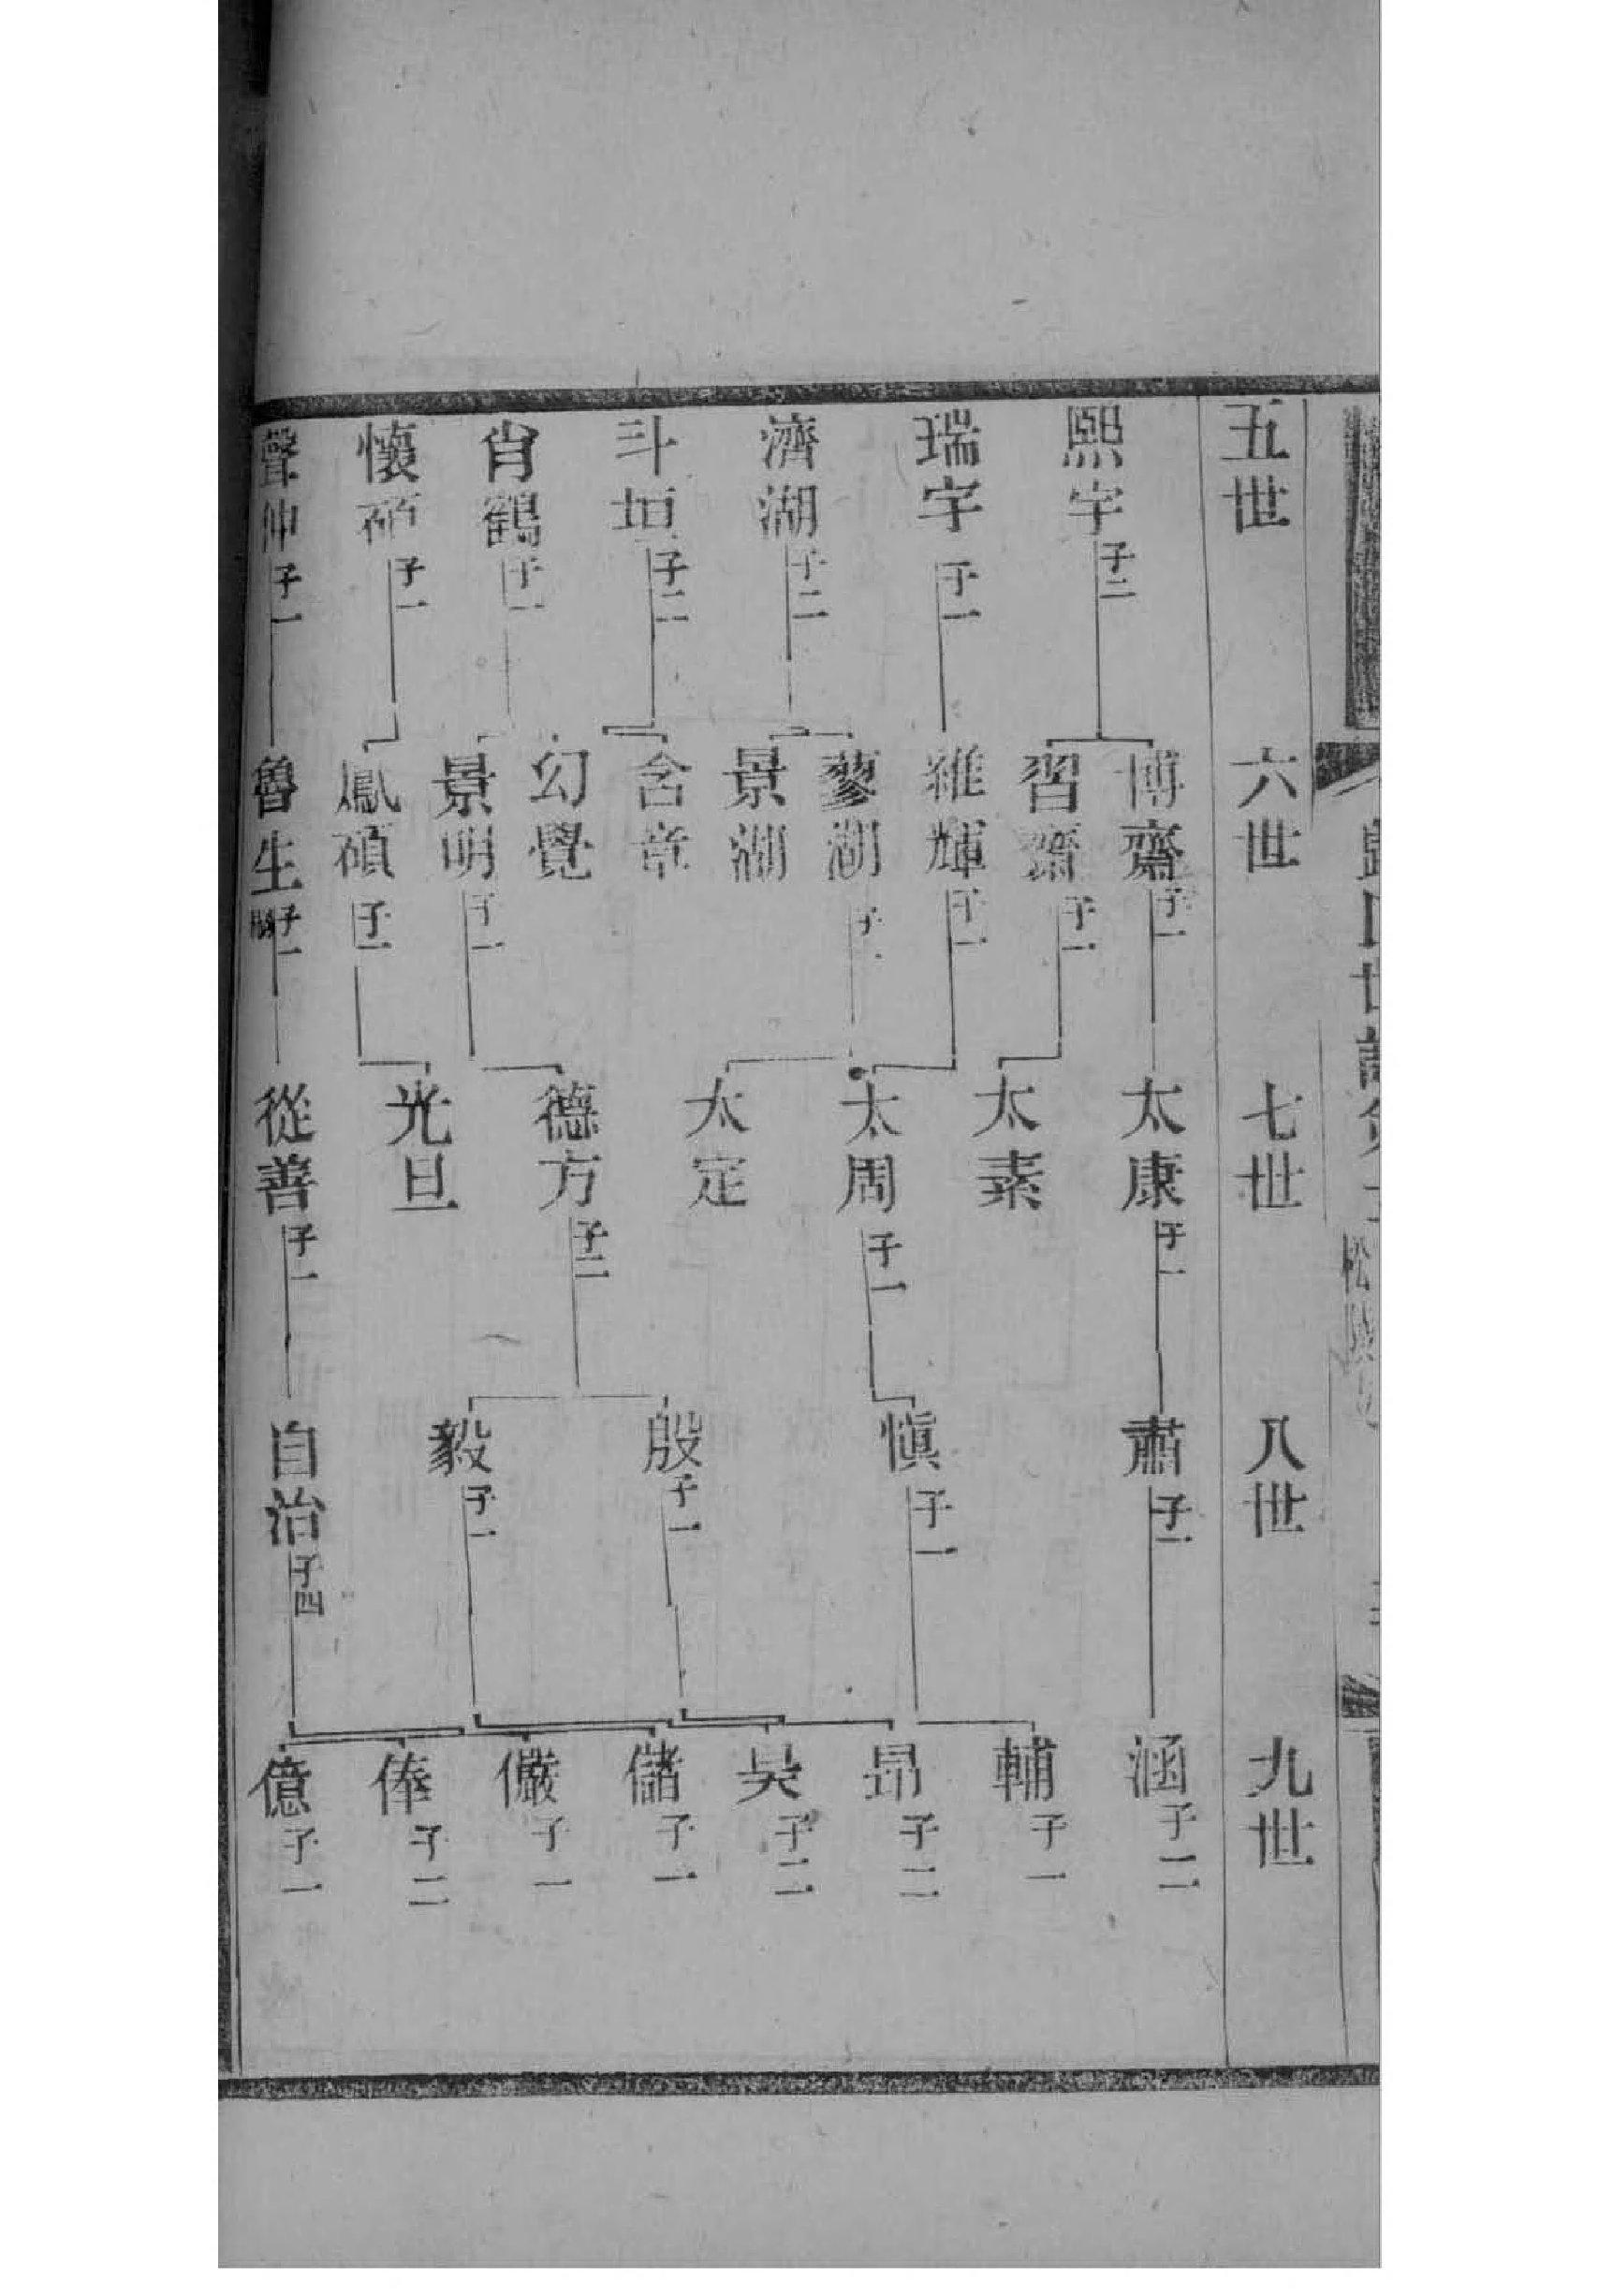 五世
熙宇 子二
瑞宇 子一
濟湖 子二
斗垣 子二
肖鶴 子一
懷碩 子一
聲仲 子一
六世
博齋 子一
習齋 子一
維輝 子一
蓼湖 子一
景湖
含章
幻覺
景明 子一
鳳碩 子一
魯生 子一
七世
太康 子一
太素
太周 子一
太定
德方 子二
光旦
從善 子一
八世
肅 子二
愼 子一
殷 子一
毅 子一
自治 子四
九世
涵 子二
輔 子一
昂 子二
吳 子二
儲 子一
儼 子一
俸 子二
億 子一